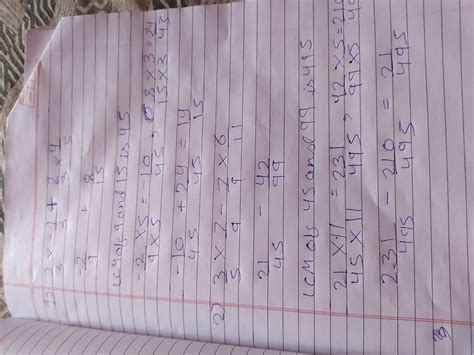 1) 2/3 × -1/3 + 2/3 × 4/5
-2/9 + 8/15
LCM of 9 and 15 is 45
-2×5/9×5 = -10/45, 8×3/15×3 = 24/45
-10/45 + 24/45 = 14/15
2) 3/5 × 7/9 - 7/9 × 6/11
21/45 - 42/99
LCM of 45 and 99 is 495
21×11/45×11 = 231/495, 42×5/99×5 = 210/495
231/495 - 210/495 = 21/495
3)